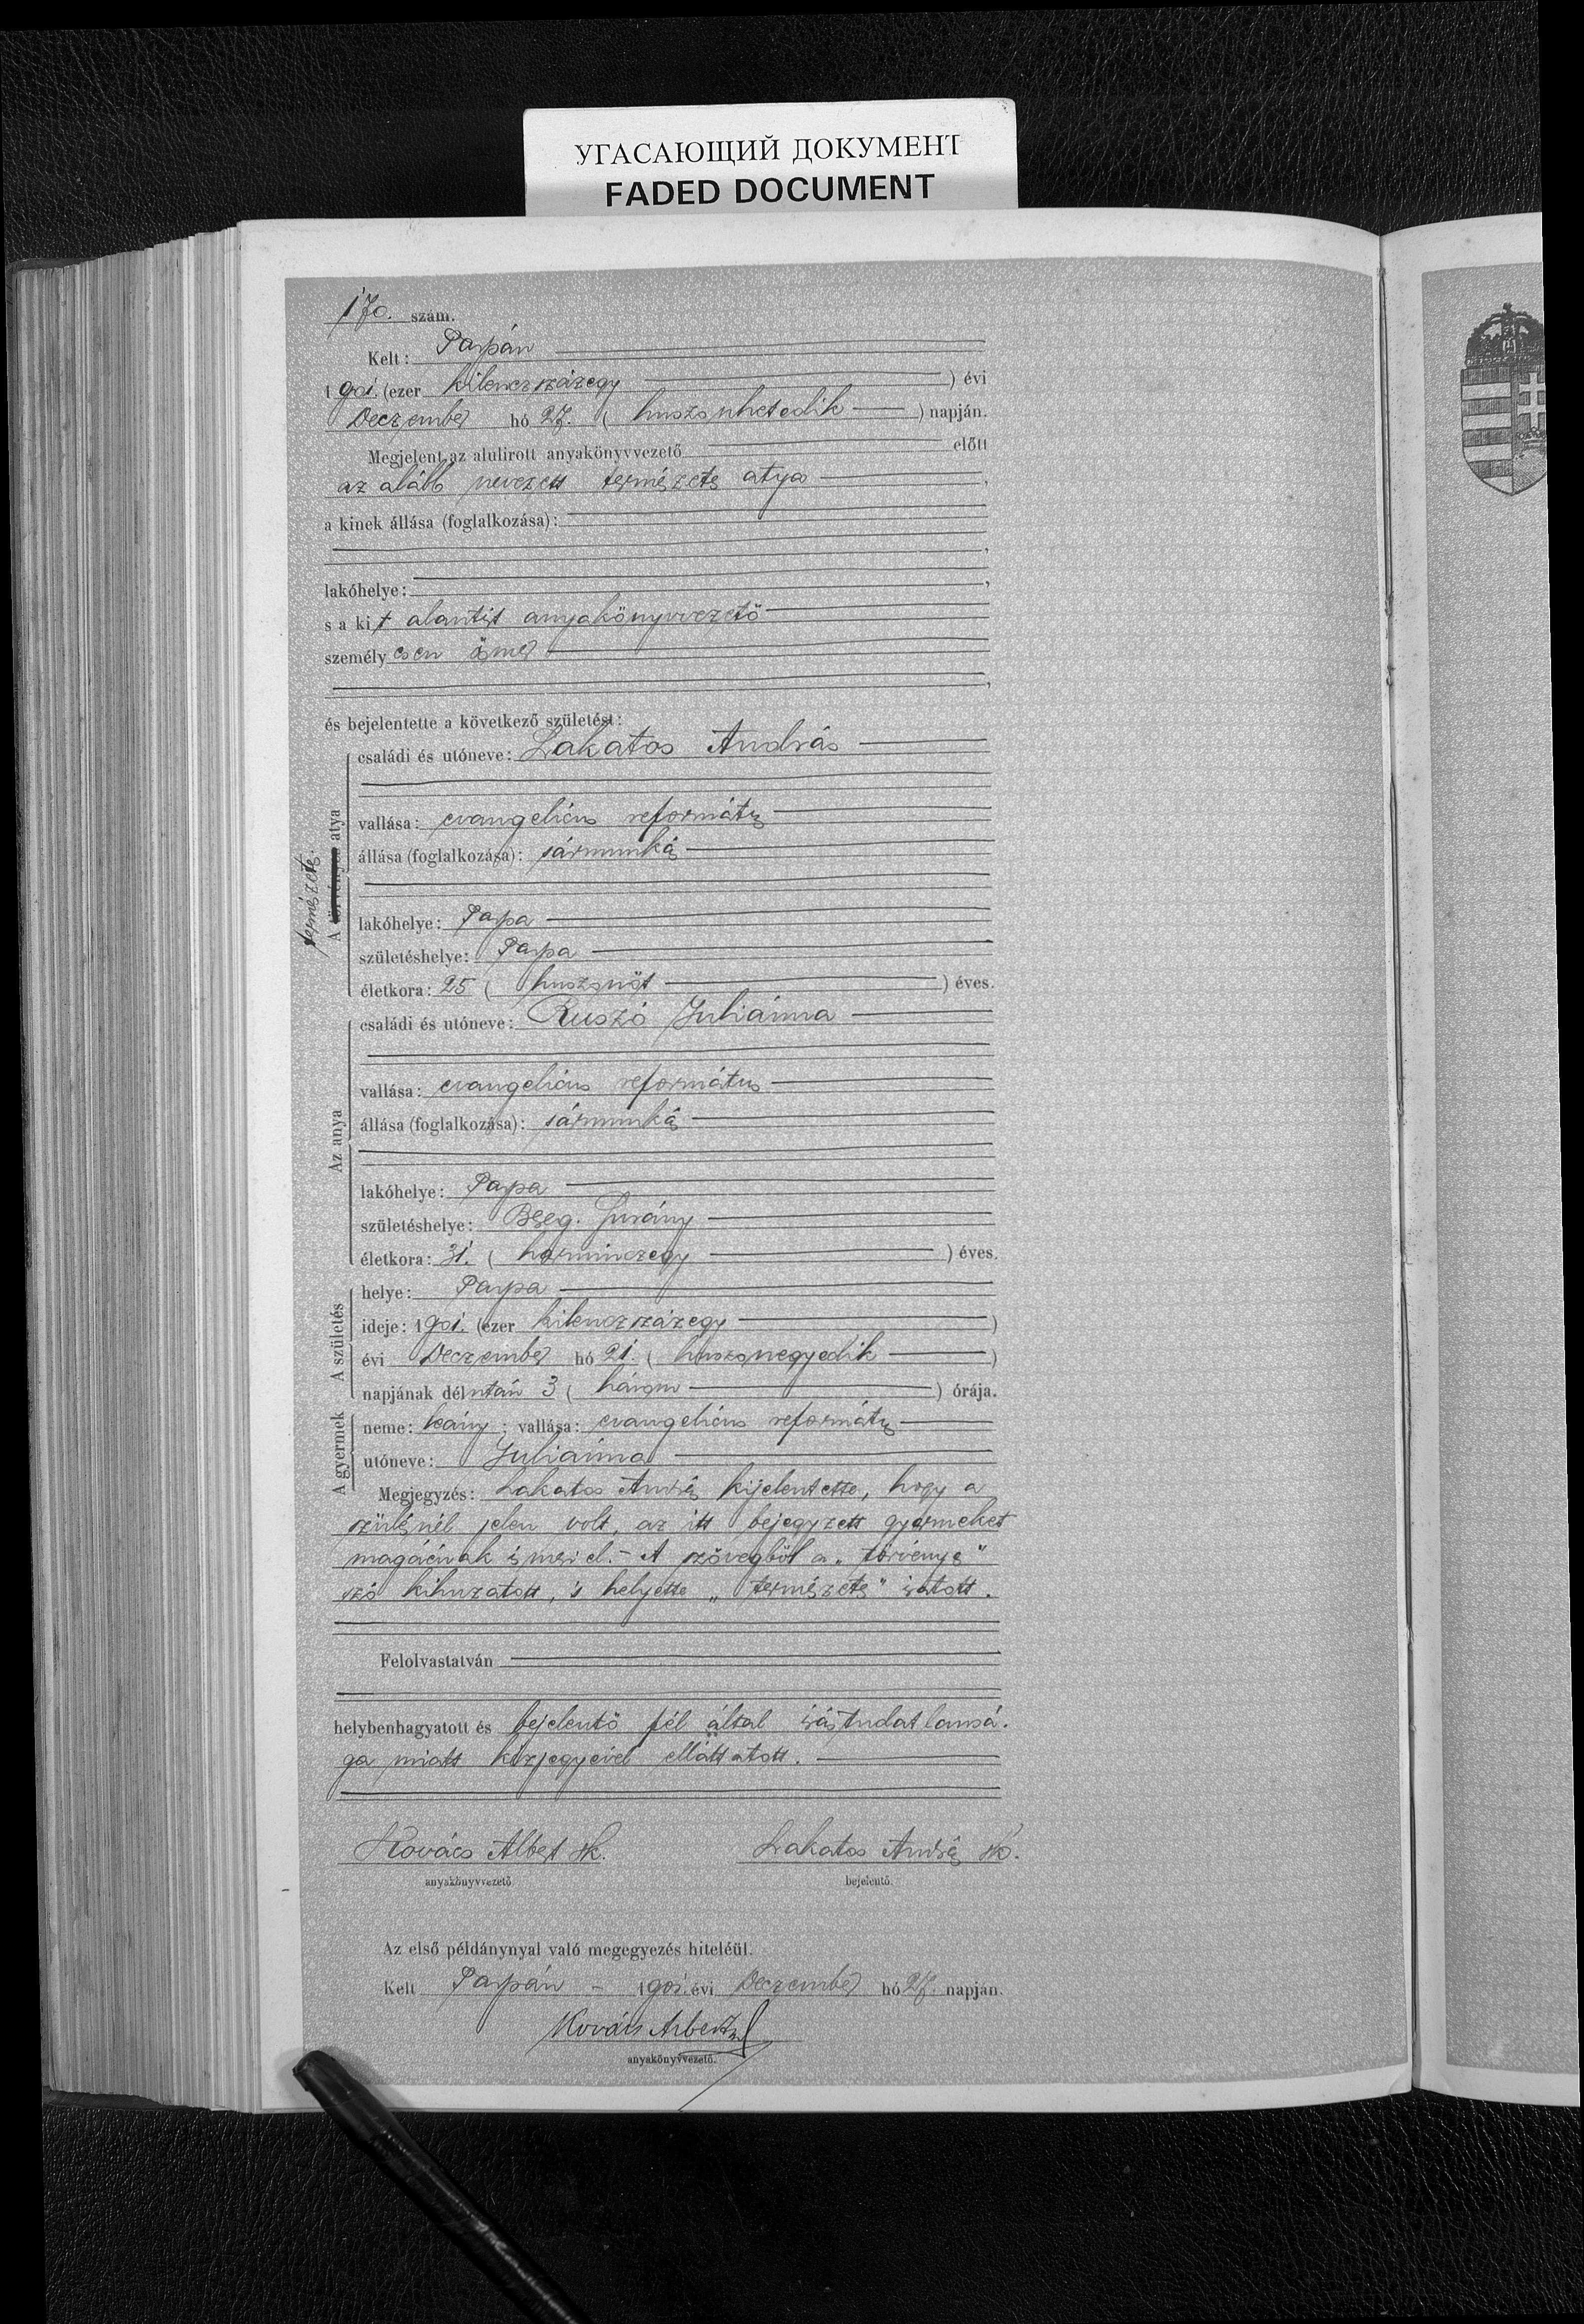 УГАСАЮЩИЙ ДОКУМЕНТ
FADED DOCUMENT
170. szám.
Kelt: Tarpán
1901. (ezer kilenczszázegy ) évi
Deczember hó 27. ( huszonhetedik ) napján.
Megjelent az alulirott anyakönyvvezető előtt
az alább nevezett természetes atya ,
a kinek állása (foglalkozása):
,
lakóhelye: ,
s a kit alantirt anyakönyvvezető
személyesen ismer
,
és bejelentette a következő születést:
természetes.
A törvényes atya
családi és utóneve: Lakatos András
vallása: evangelicus református
állása (foglalkozása): sármunkás
lakóhelye: Tarpa
születéshelye: Tarpa
életkora: 25 ( huszonöt ) éves.
Az anya
családi és utóneve: Ruszó Juliánna
vallása: evangelicus református
állása (foglalkozása): sármunkás
lakóhelye: Tarpa
születéshelye: Bereg. Surány
életkora: 31. ( harminczegy ) éves.
A születés
helye: Tarpa
ideje: 1901. (ezer kilenczszázegy )
évi Deczember hó 21. ( huszonegyedik )
napjának délután 3 ( három ) órája.
A gyermek
neme: leány; vallása: evangelicus református
utóneve: Juliánna
Megjegyzés: Lakatos András kijelentette, hogy a
szülésnél jelen volt, az itt bejegyzett gyermeket
magáénak ismeri el. - A szövegből a „törvényes"
szó kihuzatott, s helyette „természetes" iratott.
Felolvastatván
helybenhagyatott és bejelentő fél által irástudatlansá-
ga miatt kézjegyével elláttatott.
Kovács Albert sk. Lakatos András sk.
anyakönyvvezető bejelentő.
Az első példánynyal való megegyezés hiteléül.
Kelt Tarpán - 1901. évi Deczember hó 27. napján.
Kovács Albert
anyakönyvvezető.